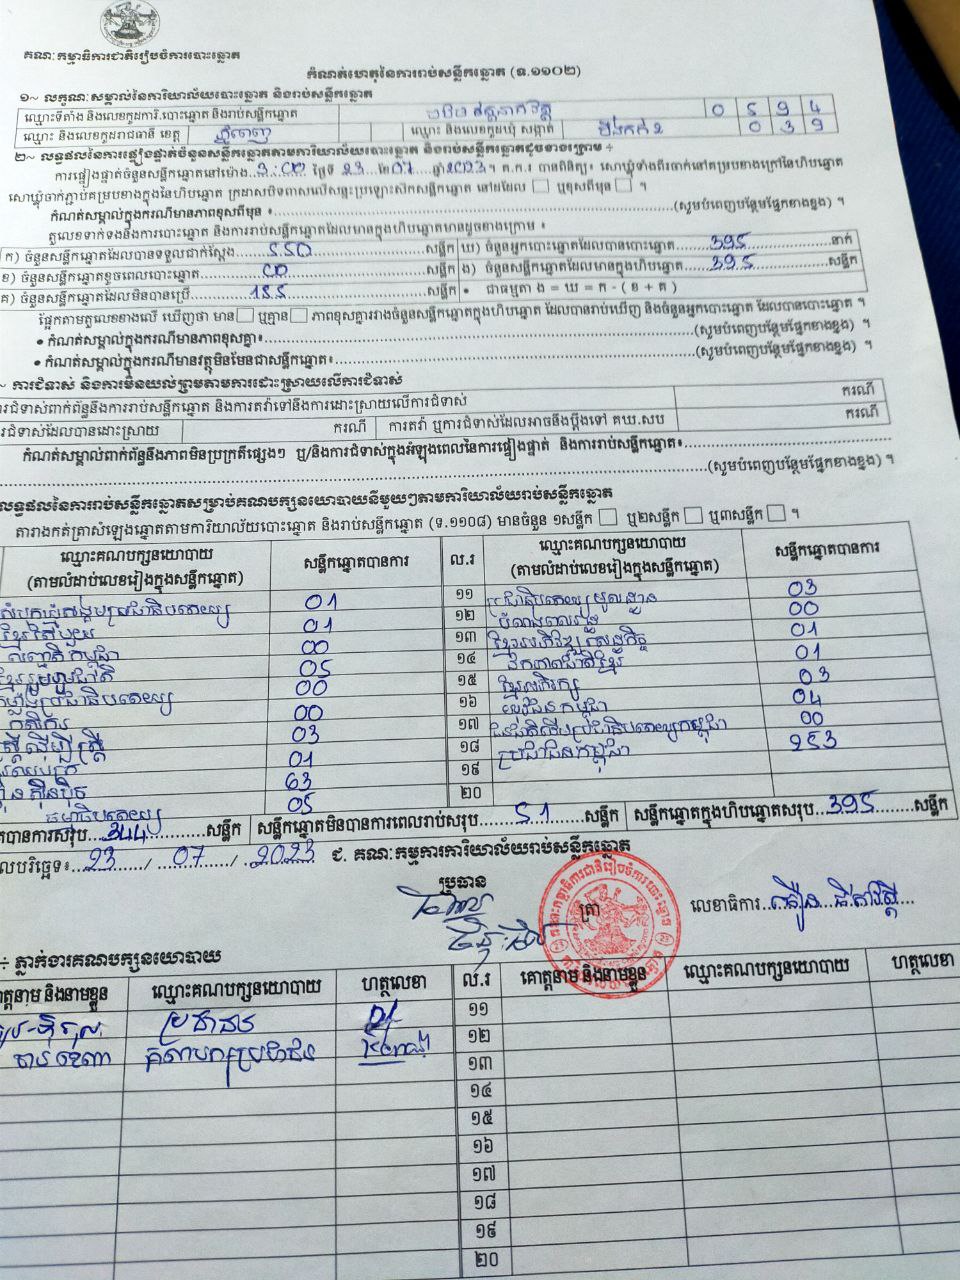 គណៈកម្មាធិការជាតិរៀបចំការបោះឆ្នោត
កំណត់ហេតុនៃការរាប់សន្លឹកឆ្នោត (ទ.១១០២)
១~ លក្ខណៈសម្គាល់នៃការិយាល័យបោះឆ្នោត និងរាប់សន្លឹកឆ្នោត
ឈ្មោះទីតាំង និងលេខកូដការិ.បោះឆ្នោត និងរាប់សន្លឹកឆ្នោត 0 5 9 4
ឈ្មោះ និងលេខកូដរាជធានី ខេត្ត ភ្នំពេញ ឈ្មោះ និងលេខកូដឃុំ សង្កាត់ 0 3 9
២~ លទ្ធផលនៃការផ្ទៀងផ្ទាត់ចំនួនសន្លឹកឆ្នោតតាមការិយាល័យបោះឆ្នោត និងរាប់សន្លឹកឆ្នោតដូចខាងក្រោម ÷
ការផ្ទៀងផ្ទាត់ចំនួនសន្លឹកឆ្នោតនៅម៉ោង 3:00 ថ្ងៃទី 23 ខែ 07 ឆ្នាំ 2023 ។ គ.ក.រ បានពិនិត្យ៖ សោឃ្លុំទាំងពីរចាក់នៅគម្របខាងក្រៅនៃហិបឆ្នោត
សោឃ្លុំចាក់ភ្ជាប់គម្របខាងក្នុងនៃហិបឆ្នោត ក្រដាសបិទពាសលើសន្ទះប្រឡោះស៊កសន្លឹកឆ្នោត នៅដដែល ឬខុសពីមុន ។
កំណត់សម្គាល់ក្នុងករណីមានភាពខុសពីមុន ៖ (សូមបំពេញបន្ថែមផ្នែកខាងខ្នង) ។
តួលេខទាក់ទងនឹងការបោះឆ្នោត និងការរាប់សន្លឹកឆ្នោតដែលមានក្នុងហិបឆ្នោតមានដូចខាងក្រោម ៖
ក) ចំនួនសន្លឹកឆ្នោតដែលបានទទួលជាក់ស្តែង 550 សន្លឹក ឃ) ចំនួនអ្នកបោះឆ្នោតដែលបានបោះឆ្នោត 395 នាក់
ខ) ចំនួនសន្លឹកឆ្នោតខូចពេលបោះឆ្នោត 00 សន្លឹក ង) ចំនួនសន្លឹកឆ្នោតដែលមានក្នុងហិបឆ្នោត 395 សន្លឹក
គ) ចំនួនសន្លឹកឆ្នោតដែលមិនបានប្រើ 155 សន្លឹក • ជាធម្មតា ង = ឃ = ក - ( ខ + គ )
ផ្អែកតាមតួលេខខាងលើ ឃើញថា មាន ឬគ្មាន ភាពខុសគ្នារវាងចំនួនសន្លឹកឆ្នោតក្នុងហិបឆ្នោត ដែលបានរាប់ឃើញ និងចំនួនអ្នកបោះឆ្នោត ដែលបានបោះឆ្នោត ។
• កំណត់សម្គាល់ក្នុងករណីមានភាពខុសគ្នា៖ (សូមបំពេញបន្ថែមផ្នែកខាងខ្នង) ។
• កំណត់សម្គាល់ក្នុងករណីមានវត្ថុមិនមែនជាសន្លឹកឆ្នោត៖ (សូមបំពេញបន្ថែមផ្នែកខាងខ្នង) ។
~ ការជំទាស់ និងការមិនយល់ព្រមតាមការដោះស្រាយលើការជំទាស់
ការជំទាស់ពាក់ព័ន្ធនឹងការរាប់សន្លឹកឆ្នោត និងការតវ៉ាទៅនឹងការដោះស្រាយលើការជំទាស់ ករណី
ការជំទាស់ដែលបានដោះស្រាយ ករណី ការតវ៉ា ឬការជំទាស់ដែលអាចនឹងប្តឹងទៅ គឃ.សប ករណី
កំណត់សម្គាល់ពាក់ព័ន្ធនឹងភាពមិនប្រក្រតីផ្សេងៗ ឬ/និងការជំទាស់ក្នុងអំឡុងពេលនៃការផ្ទៀងផ្ទាត់ និងការរាប់សន្លឹកឆ្នោត៖
(សូមបំពេញបន្ថែមផ្នែកខាងខ្នង) ។
លទ្ធផលនៃការរាប់សន្លឹកឆ្នោតសម្រាប់គណបក្សនយោបាយនីមួយៗតាមការិយាល័យរាប់សន្លឹកឆ្នោត
តារាងកត់ត្រាសំឡេងឆ្នោតតាមការិយាល័យបោះឆ្នោត និងរាប់សន្លឹកឆ្នោត (ទ.១១០៨) មានចំនួន ១សន្លឹក ឬ២សន្លឹក ឬ៣សន្លឹក ។
ឈ្មោះគណបក្សនយោបាយ សន្លឹកឆ្នោតបានការ ល.រ ឈ្មោះគណបក្សនយោបាយ សន្លឹកឆ្នោតបានការ
(តាមលំដាប់លេខរៀងក្នុងសន្លឹកឆ្នោត) (តាមលំដាប់លេខរៀងក្នុងសន្លឹកឆ្នោត)
សំបុកឃ្មុំសង្គមប្រជាធិបតេយ្យ 01 ១១ ប្រជាធិបតេយ្យមូលដ្ឋាន 03
ខ្មែរតែមួយ 01 ១២ 00
សញ្ជាតិកម្ពុជា 00 ១៣ ខ្មែរអភិវឌ្ឍន៍សេដ្ឋកិច្ច 01
ខ្មែររួបរួមជាតិ 05 ១៤ ឯកភាពជាតិខ្មែរ 01
កម្លាំងប្រជាធិបតេយ្យ 00 ១៥ ខ្មែរអភិរក្ស 03
កសិករ 00 ១៦ យុវជនកម្ពុជា 04
ស្ត្រីដើម្បីស្ត្រី 03 ១៧ ជនជាតិដើមប្រជាធិបតេយ្យកម្ពុជា 00
01 ១៨ ប្រជាជនកម្ពុជា 253
ហ៊្វុនស៊ិនប៉ិច 63 ១៩
ធម្មាធិបតេយ្យ 05 ២០
បានការសរុប 344 សន្លឹក សន្លឹកឆ្នោតមិនបានការពេលរាប់សរុប 51 សន្លឹក សន្លឹកឆ្នោតក្នុងហិបឆ្នោតសរុប 395 សន្លឹក
កាលបរិច្ឆេទ៖ 23 / 07 / 2023 ជ. គណៈកម្មការការិយាល័យរាប់សន្លឹកឆ្នោត
ប្រធាន ត្រា លេខាធិការ
÷ ភ្នាក់ងារគណបក្សនយោបាយ
គោត្តនាម និងនាមខ្លួន ឈ្មោះគណបក្សនយោបាយ ហត្ថលេខា ល.រ គោត្តនាម និងនាមខ្លួន ឈ្មោះគណបក្សនយោបាយ ហត្ថលេខា
ប្រជាជន ១១
គណបក្សប្រជាជន ១២
១៣
១៤
១៥
១៦
១៧
១៨
១៩
២០